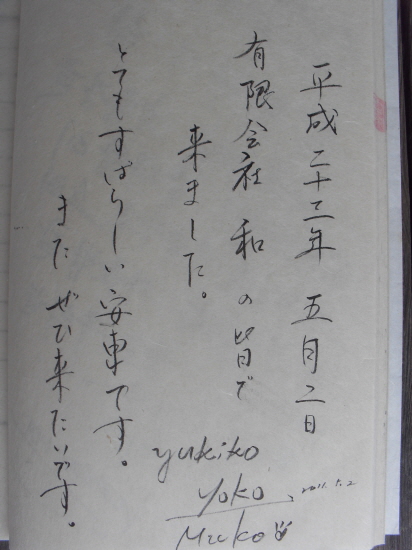 平成二十三年 五月二日
有限会社 和 の皆で
来ました。
とてもすばらしい安東です。
また ぜひ来たいです。
yukiko
yoko
Muko
2011.5.2